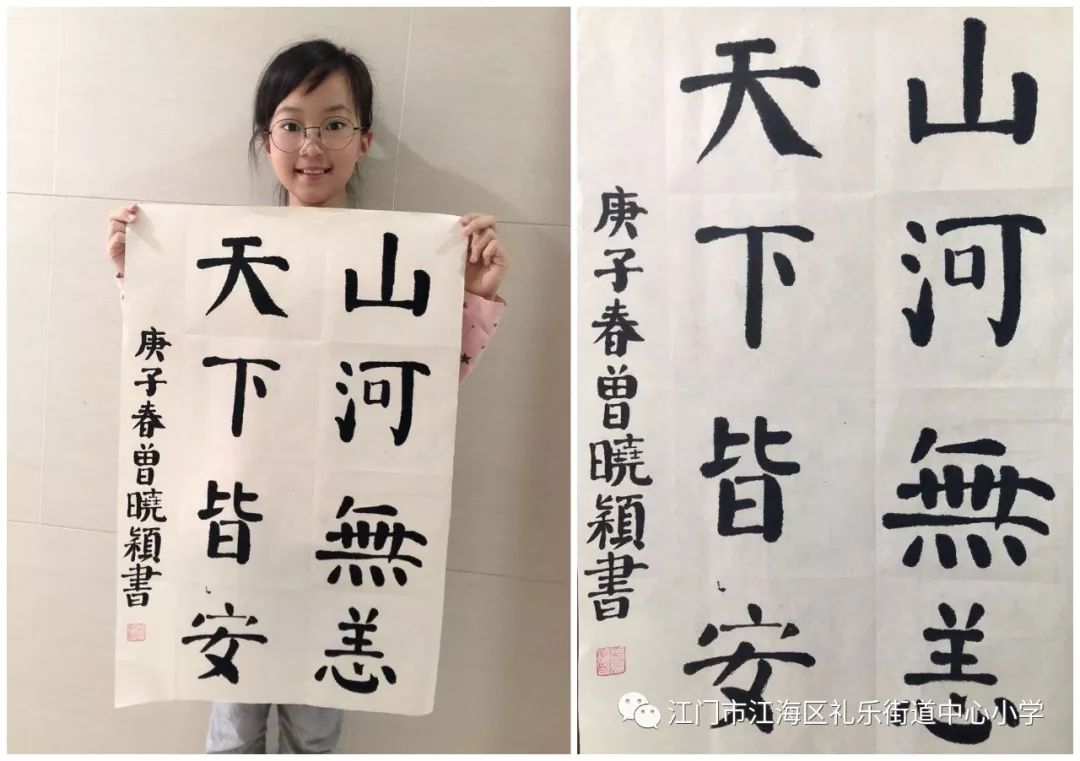 山河無恙
天下皆安
庚子春曾曉穎書
山河無恙
天下皆安
庚子春曾曉穎書
江门市江海区礼乐街道中心小学